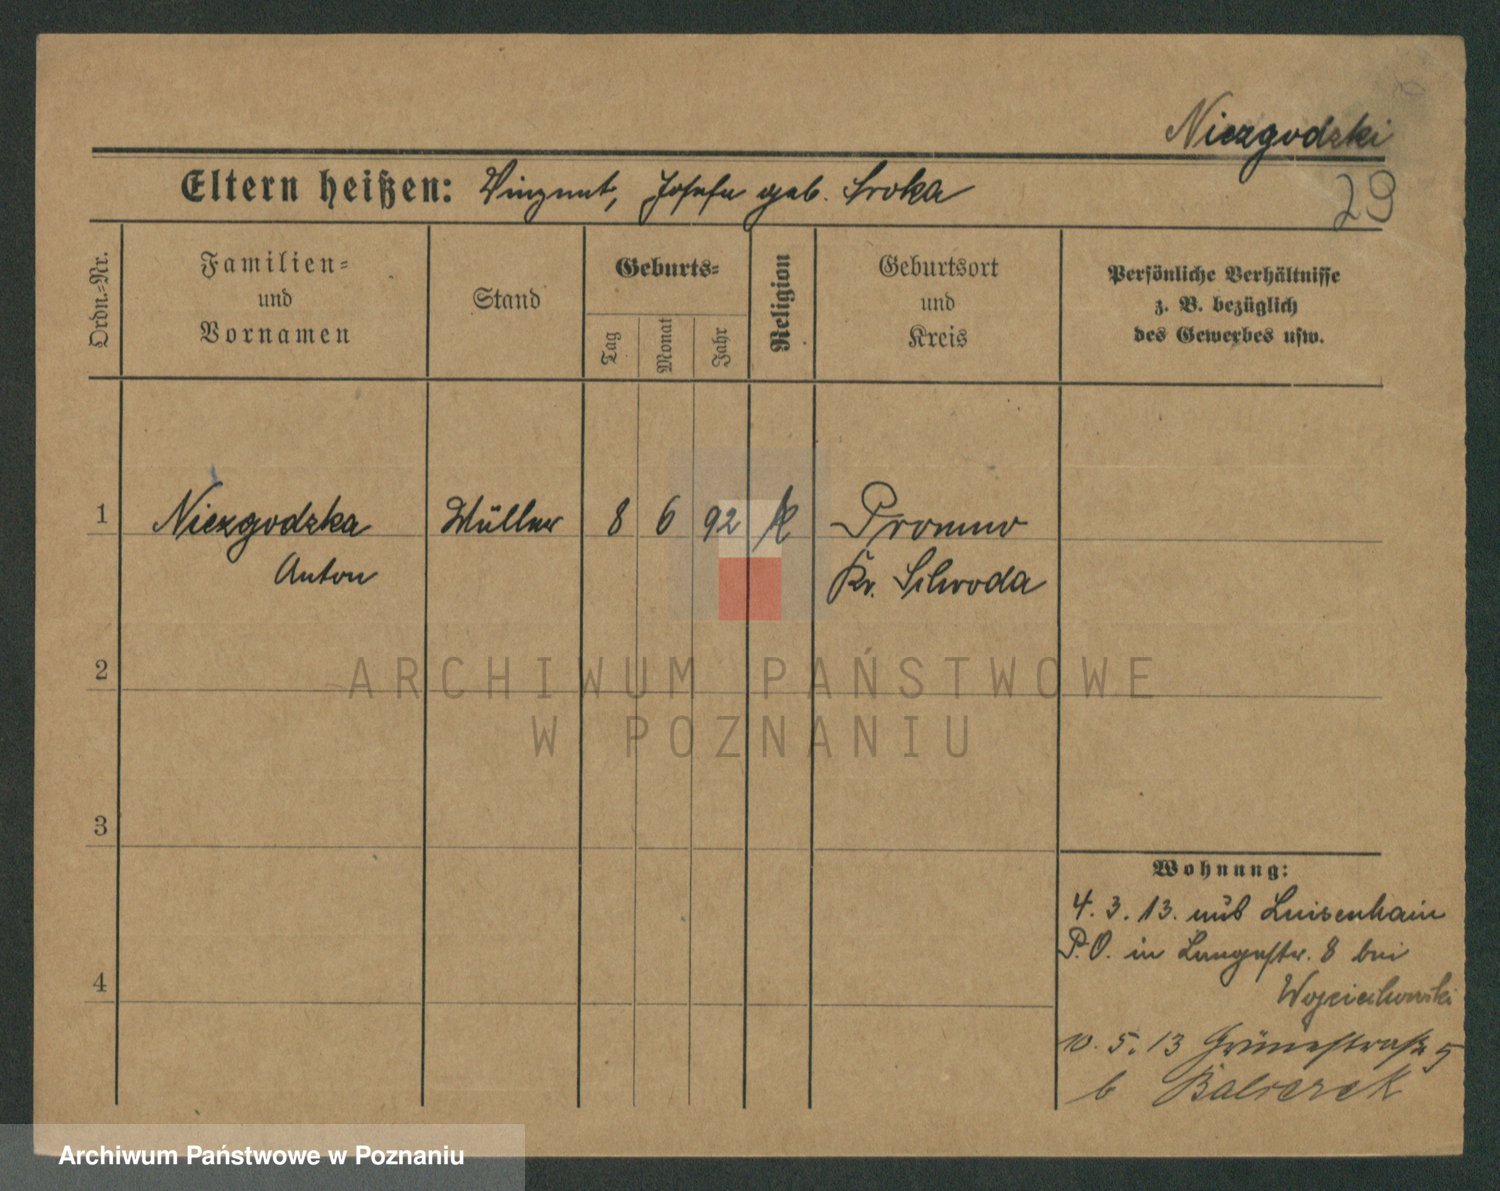 Niezgodzki
Eltern heißen: Vinzent, Josefa geb. Sroka
29
Ordn.-Nr.
Familien-
und
Vornamen
Stand
Geburts-
Tag
Monat
Jahr
Religion
Geburtsort
und
Kreis
Persönliche Verhältnisse
z. B. bezüglich
des Gewerbes usw.
1 Niezgodzka Müller 8 6 92 k Promno
Anton Kr. Schroda
2
ARCHIWUM PAŃSTWOWE
W POZNANIU
3
Wohnung:
4. 3. 13. aus Luisenhain
P.O. in Langestr. 8 bei
4
Wojciechowski
10. 5. 13 Grünestraße 5
b
Archiwum Państwowe w Poznaniu